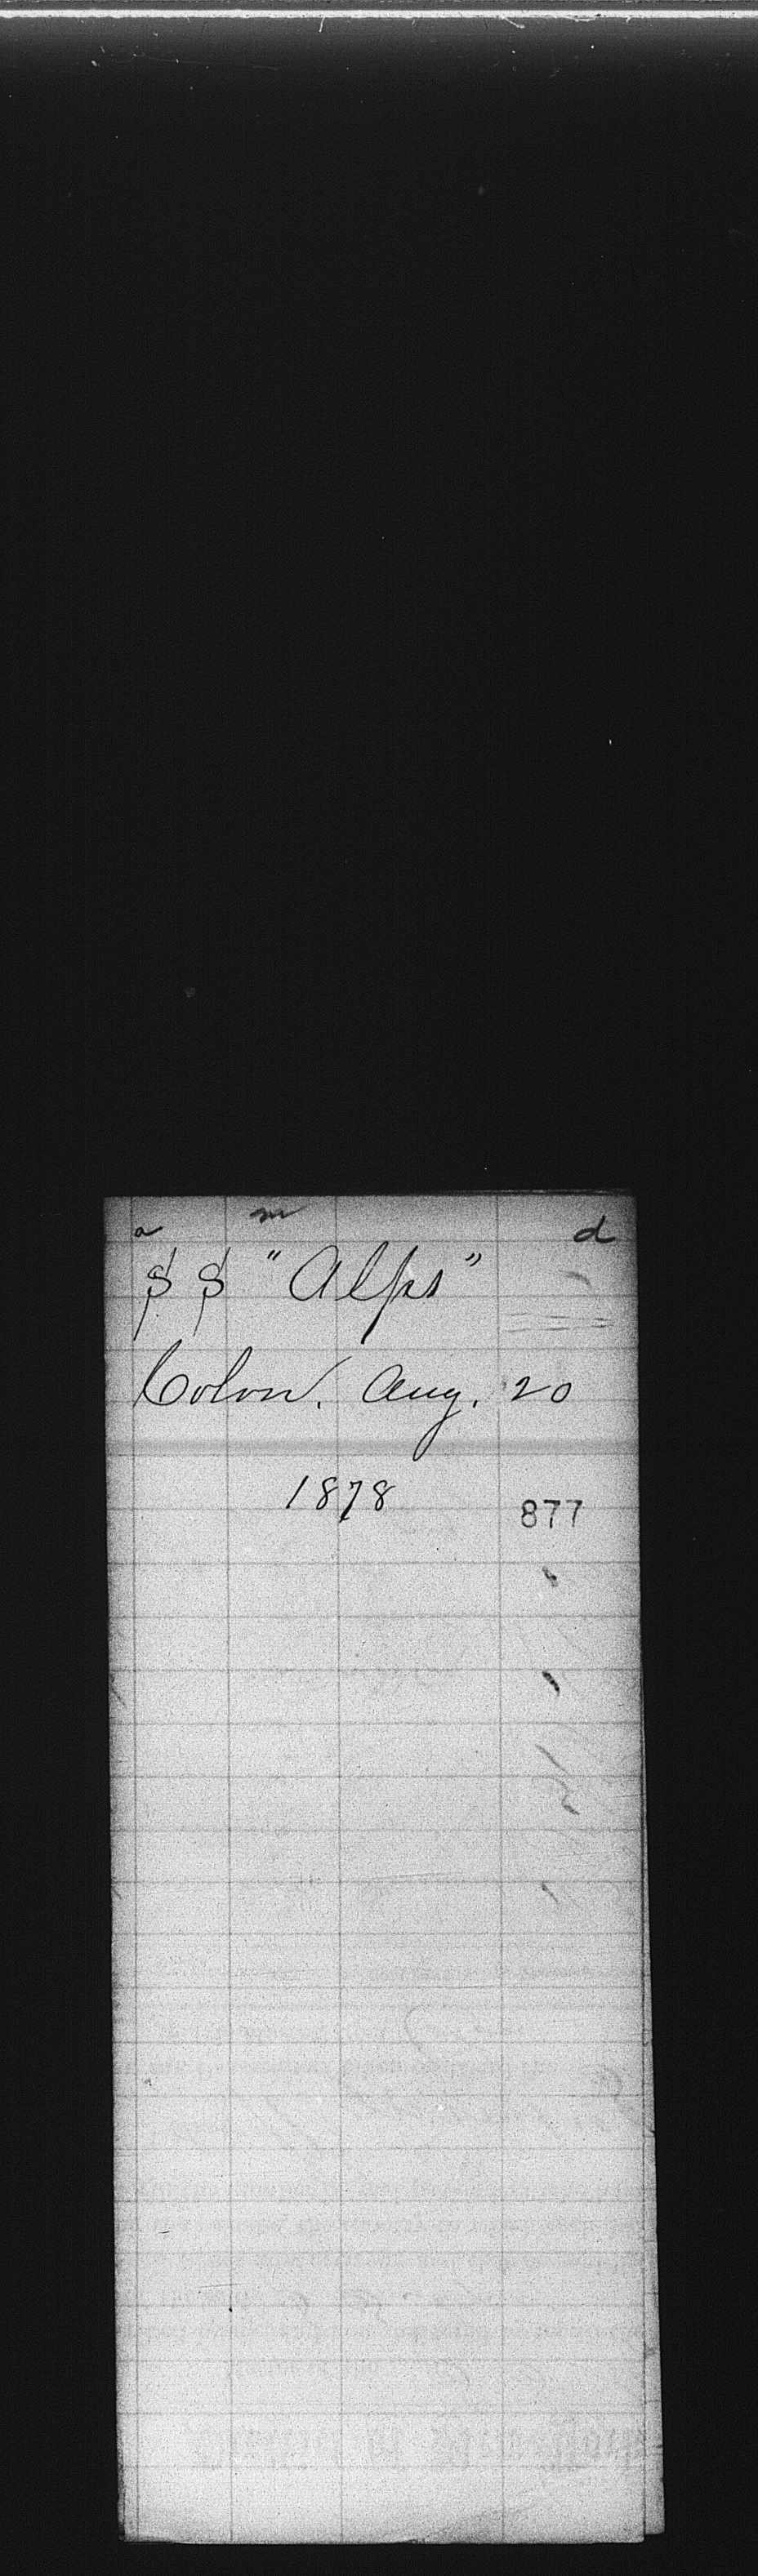 a m d
S S "Alps"
Colon. Aug. 20
1878
877